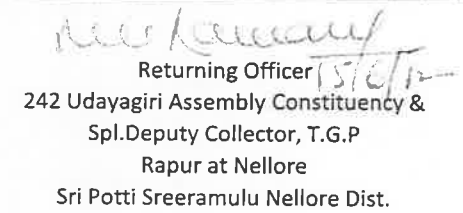 Returning Officer 15/6/12
242 Udayagiri Assembly Constituency &
Spl.Deputy Collector, T.G.P
Rapur at Nellore
Sri Potti Sreeramulu Nellore Dist.